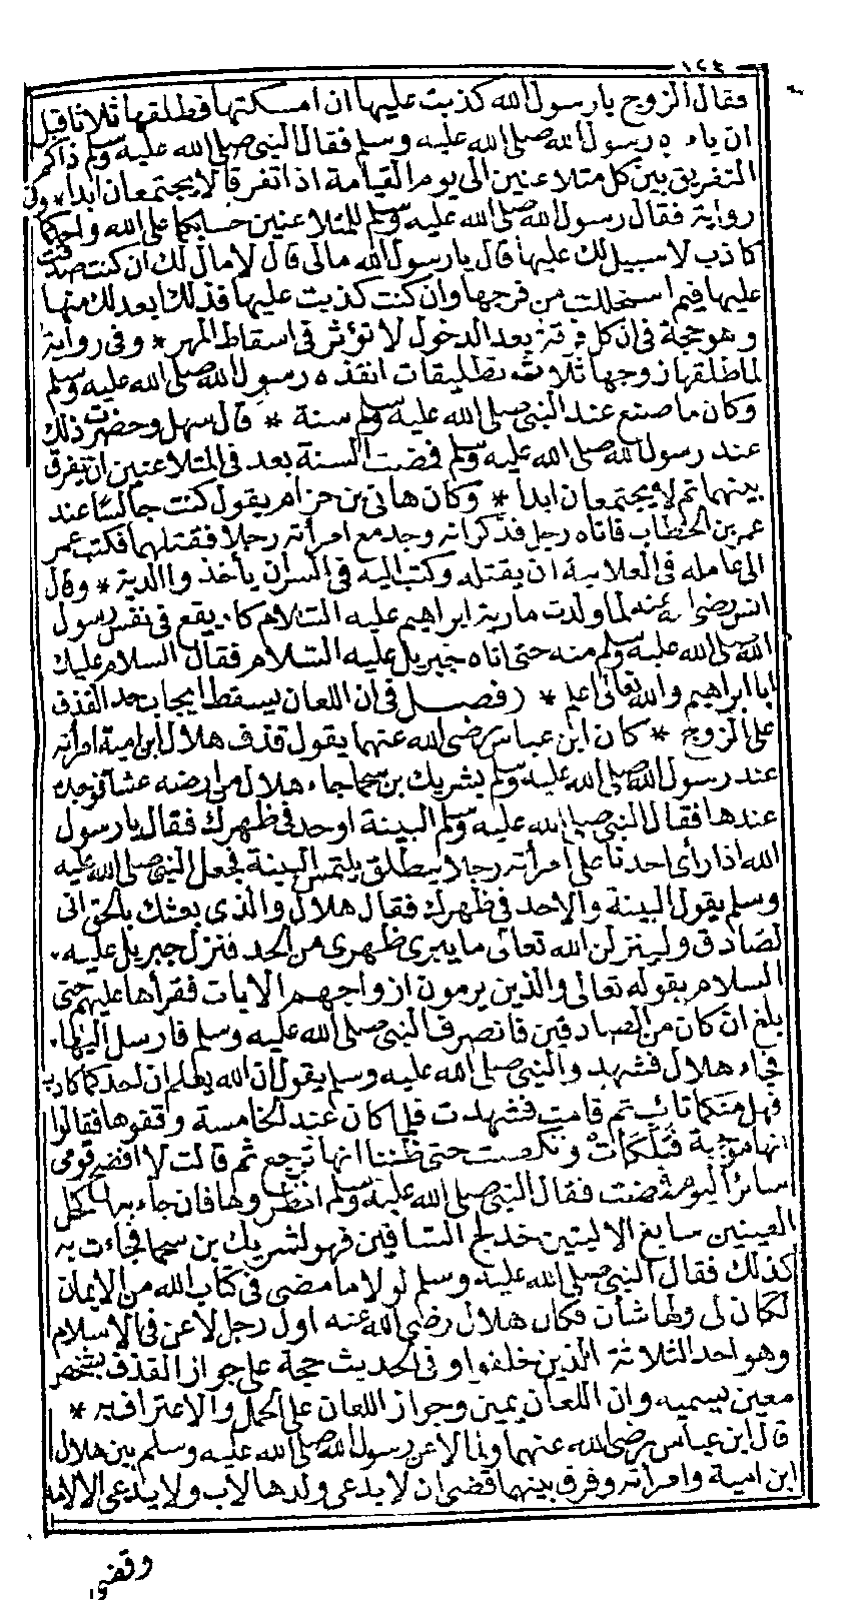 ١٢٤
فقال الزوج يا رسول الله كذبت عليها ان امسكتها فطلقها ثلاثا قبل
ان يامره رسول الله صلى الله عليه وسلم فقال النبي صلى الله عليه وسلم ذاكم
التفريق بين كل متلاعنين الى يوم القيامة اذا تفرقا لا يجتمعان ابدا * وفى
رواية فقال رسول الله صلى الله عليه وسلم للمتلاعنين حسابكما على الله واحدكما
كاذب لا سبيل لك عليها قال يا رسول الله مالى قال لا مال لك ان كنت صدقت
عليها فبم استحللت من فرجها وان كنت كذبت عليها فذلك ابعد لك منها
وهو حجة فى ان كل فرقة بعد الدخول لا تؤثر فى اسقاط المهر * وفى رواية
لما طلقها زوجها ثلاث تطليقات انفذه رسول الله صلى الله عليه وسلم
وكان ما صنع عند النبي صلى الله عليه وسلم سنة * قال سهل وحضرت ذلك
عند رسول الله صلى الله عليه وسلم فمضت السنة بعد فى المتلاعنين ان يتفرق
بينهما ثم لا يجتمعان ابدا * وكان هانى بن حزام يقول كنت جالسا عند
عمر بن الخطاب فاتاه رجل فذكر انه وجد مع امرأته رجلا فقتلهما فكتب عمر
الى عامله فى العلانية ان يقتله وكتب اليه فى السر ان ياخذوا الدية * وقال
انس رضى الله عنه لما ولدت مارية ابراهيم عليه السلام كاد يقع فى نفس رسول
الله صلى الله عليه وسلم منه حتى اتاه جبريل عليه السلام فقال السلام عليك
ابا ابراهيم والله تعالى اعلم * (فصل فى ان اللعان يسقط ايجاب حد القذف
على الزوج * كان ابن عباس رضى الله عنهما يقول قذف هلال ابن امية امرأته
عند رسول الله صلى الله عليه وسلم بشريك بن سحما جاء هلال من ارضه عشا فوجد
عندها فقال النبي صلى الله عليه وسلم البينة او حد فى ظهرك فقال يا رسول
الله اذا رأى احدنا على امرأته رجلا ينطلق يلتمس البينة فجعل النبي صلى الله عليه
وسلم يقول البينة والا حد فى ظهرك فقال هلال والذى بعثك بالحق انى
لصادق ولينزلن الله تعالى ما يبرى ظهرى من الحد فنزل جبريل عليه
السلام بقوله تعالى والذين يرمون ازواجهم الايات فقرأها عليهم حتى
بلغ ان كان من الصادقين فانصرف النبي صلى الله عليه وسلم فارسل اليها
فجاء هلال فشهد والنبي صلى الله عليه وسلم يقول ان الله يعلم ان احدكما كاذب
فهل منكما تائب ثم قامت فشهدت فلما كان عند الخامسة وقفوها فقالوا
انها موجبة فتلكأت ونكصت حتى ظننا انها ترجع ثم قالت لا افضح قومى
سائر اليوم فمضت فقال النبي صلى الله عليه وسلم انظروها فان جاءت به اكحل
العينين سابغ الاليتين خدلج الساقين فهو لشريك بن سحما فجاءت به
كذلك فقال النبي صلى الله عليه وسلم لولا ما مضى فى كتاب الله من الايمان
لكان لى ولها شأن فكان هلال رضى الله عنه اول رجل لاعن فى الاسلام
وهو احد الثلاثة الذين خلفوا وفى الحديث حجة على جواز القذف بشخص
معين يسميه وان اللعان يمين وجواز اللعان على الحمل والاعتراف به *
قال ابن عباس رضى الله عنهما ولما لاعن رسول الله صلى الله عليه وسلم بين هلال
ابن امية وامرأته وفرق بينهما قضى ان لا يدعى ولدها لاب ولا يدعى الا لامه
وقضى